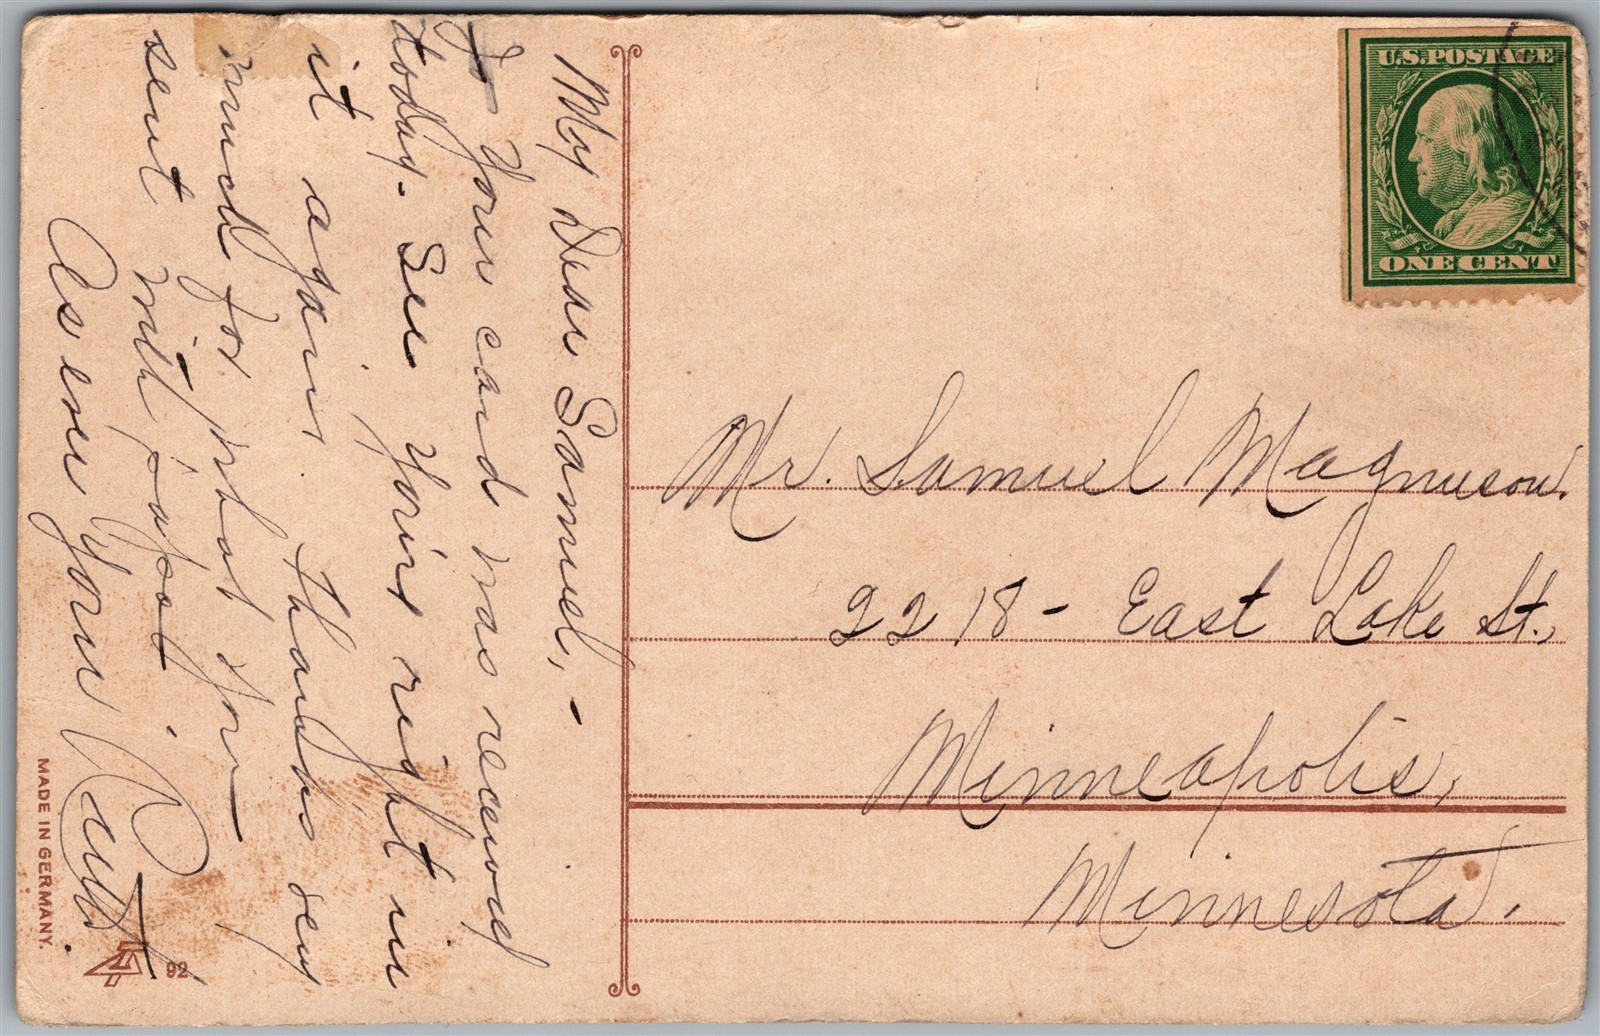 My Dear Samuel, -
Your card was received
today. See you're right in
it again. Thanks very
much for what you
sent with papa.
As ever your
Ruth.
MADE IN GERMANY.
92
U.S. POSTAGE
ONE CENT
Mr. Samuel Magnuson.
2218 - East Lake St.,
Minneapolis,
Minnesota.